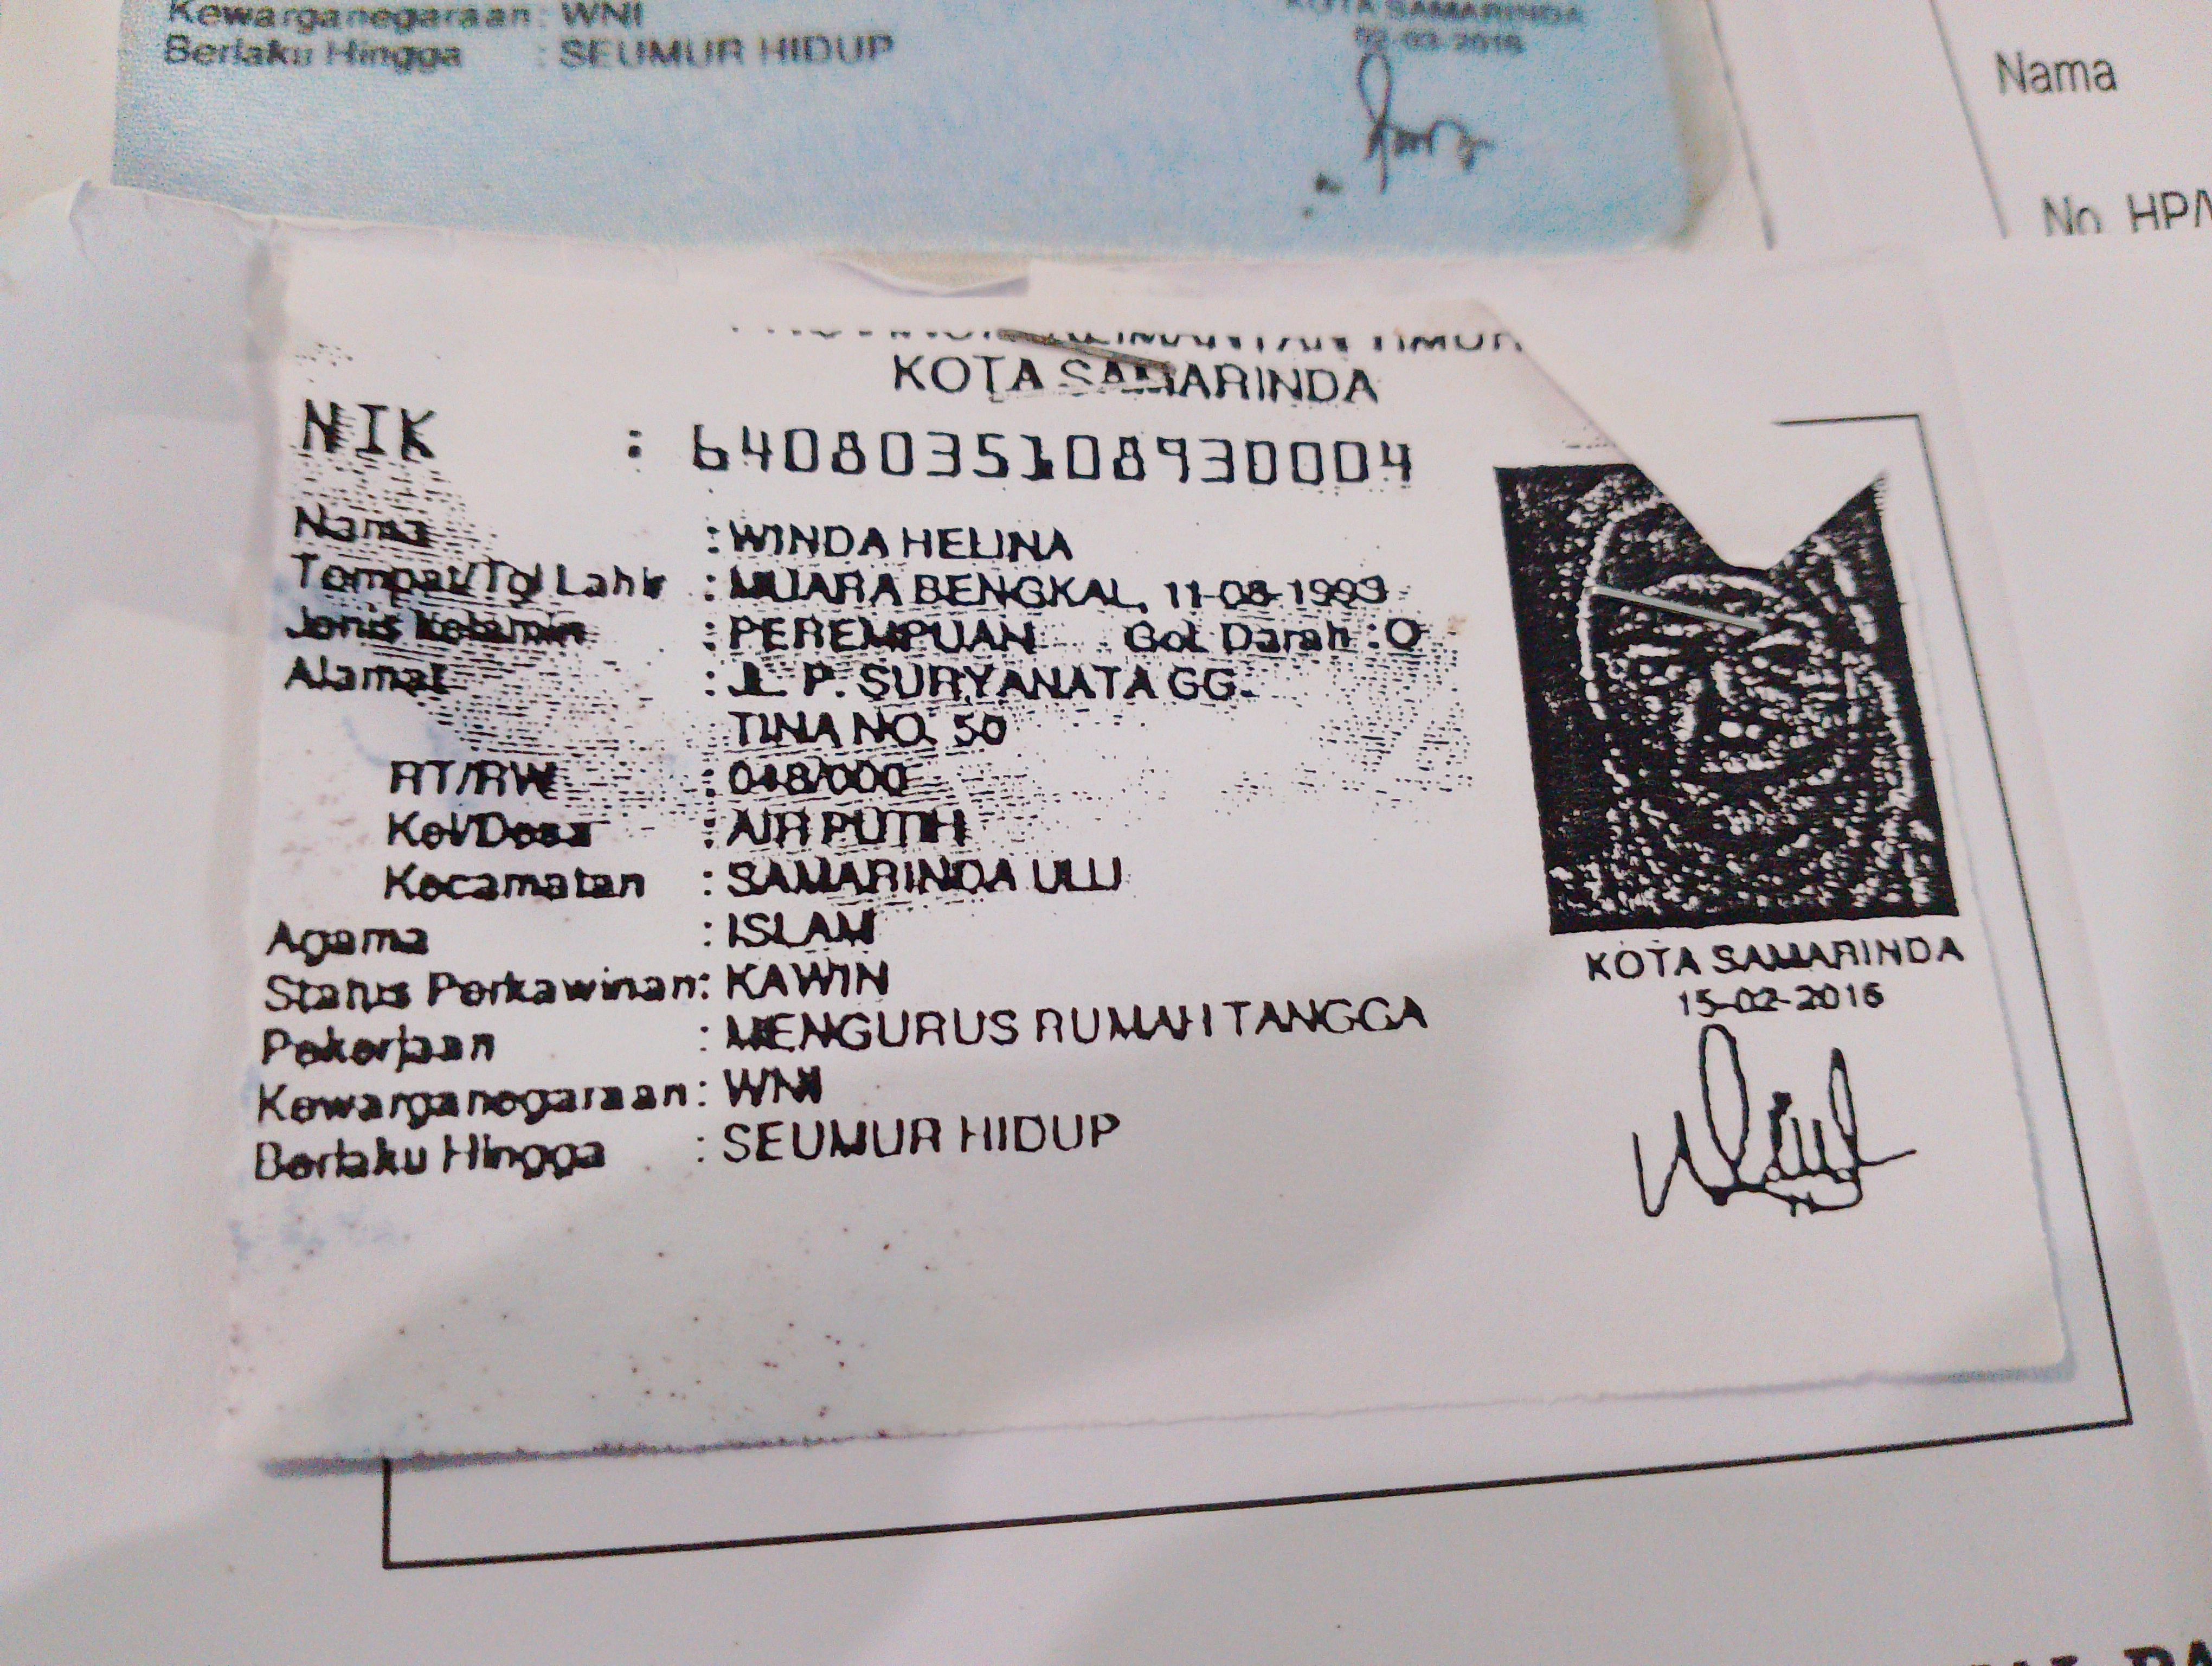 Kewarganegaraan: WNI
Berlaku Hingga : SEUMUR HIDUP
KOTA SAMARINDA
02-03-2016
Nama
No. HP/
PROVINSI KALIMANTAN TIMUR
KOTA SAMARINDA
NIK : 6408035108930004
Nama : WINDA HELINA
Tempat/Tgl Lahir : MUARA BENGKAL, 11-08-1993
Jenis Kelamin : PEREMPUAN Gol. Darah : O
Alamat : JL. P. SURYANATA GG.
TINA NO. 50
RT/RW : 048/000
Kel/Desa : AIR PUTIH
Kecamatan : SAMARINDA ULU
Agama : ISLAM
Status Perkawinan: KAWIN
Pekerjaan : MENGURUS RUMAH TANGGA
Kewarganegaraan: WNI
Berlaku Hingga : SEUMUR HIDUP
KOTA SAMARINDA
15-02-2016